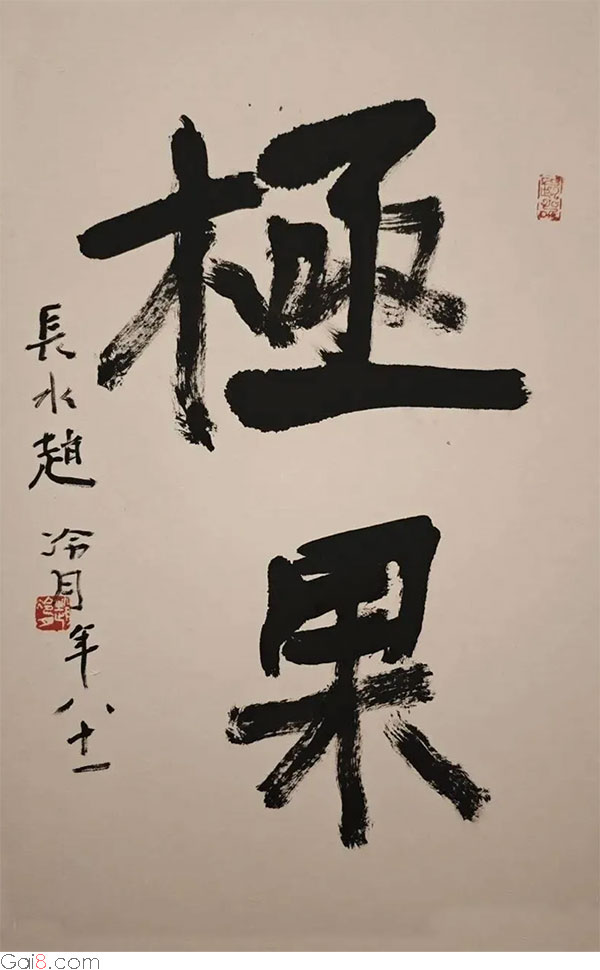 極果
長水趙冷月年八十一
Gai8.com